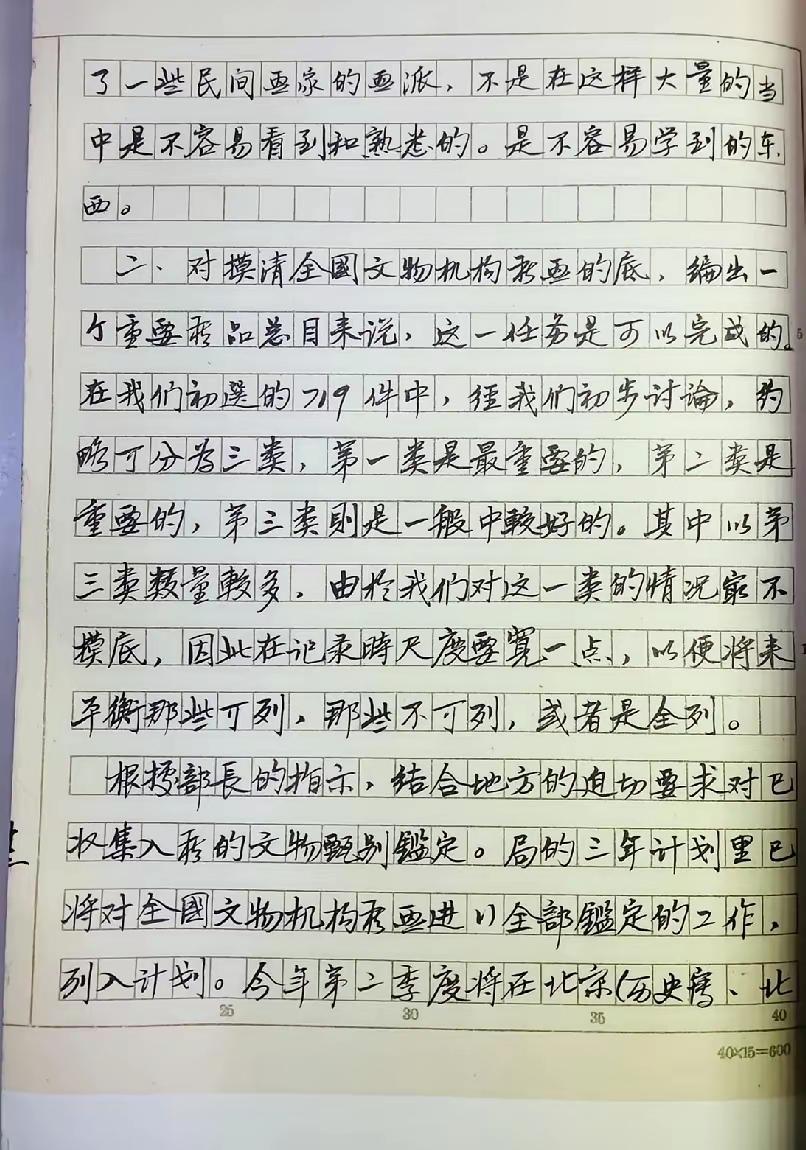 了一些民间画家的画派，不是在这样大量的当
中是不容易看到和熟悉的。是不容易学到的东
西。
二、对摸清全國文物机构藏画的底，编出一
个重要藏品总目来说，这一任务是可以完成的。
在我们初選的719件中，经我们初步讨論，约
略可分为三类，第一类是最重要的，第二类是
重要的，第三类則是一般中較好的。其中以第
三类数量較多，由於我们对这一类的情况最不
摸底，因此在记录時尺度要寬一点，以便将来
平衡那些可列，那些不可列，或者是全列。
根據部長的指示，结合地方的迫切要求对已
收集入藏的文物甄别鑑定。局的三年计划里已
将对全國文物机构藏画进行全部鑑定的工作，
列入计划。今年第二季度将在北京(历史寫、北
25 30 35 40
5
40×15=600